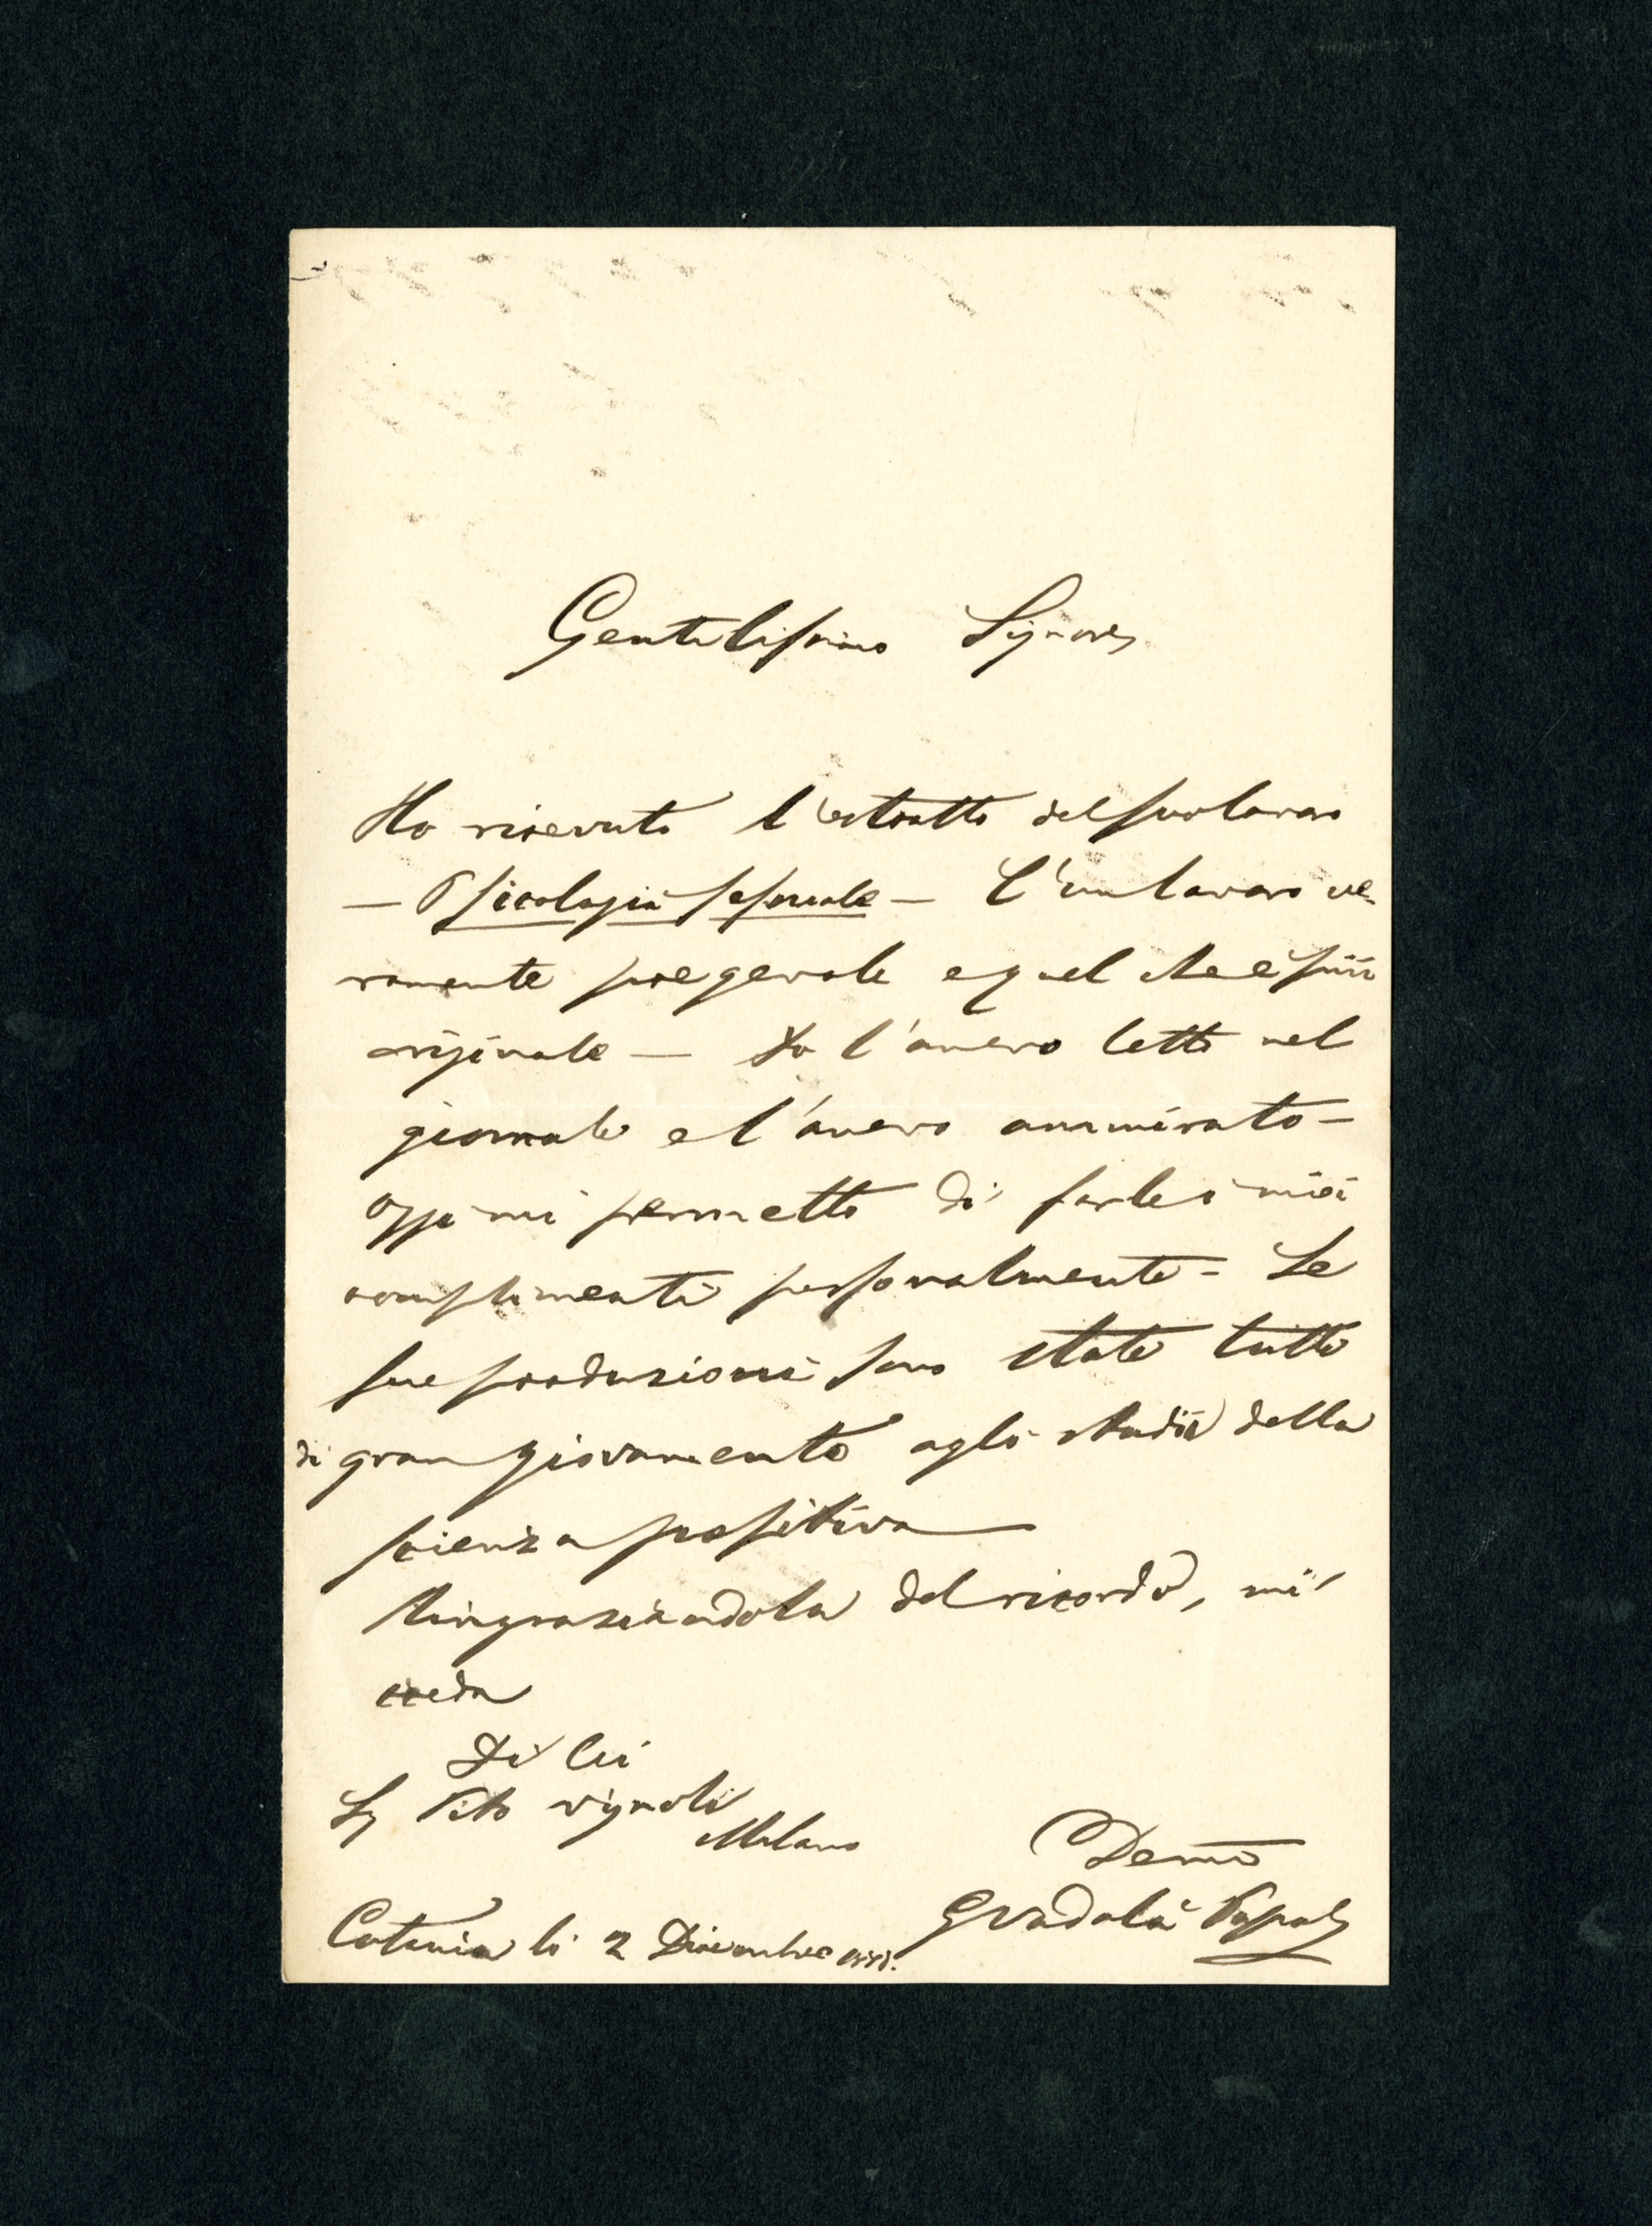 Gentilissimo Signore
Ho ricevuto l'estratto del suo lavoro
— Psicologia sessuale — È un lavoro ve-
ramente pregevole e quel che è più
originale — Io l'avevo letto nel
giornale e l'avevo ammirato -
Oggi mi permetto di farle i miei
complimenti personalmente - Le
sue produzioni sono state tutte
di gran giovamento agli studii della
scienza positiva
Ringraziandola del ricordo, mi
creda
Di lei
Sg Tito Vignoli
Milano
Devmo
Gradalà Papale
Catania li 2 Dicembre